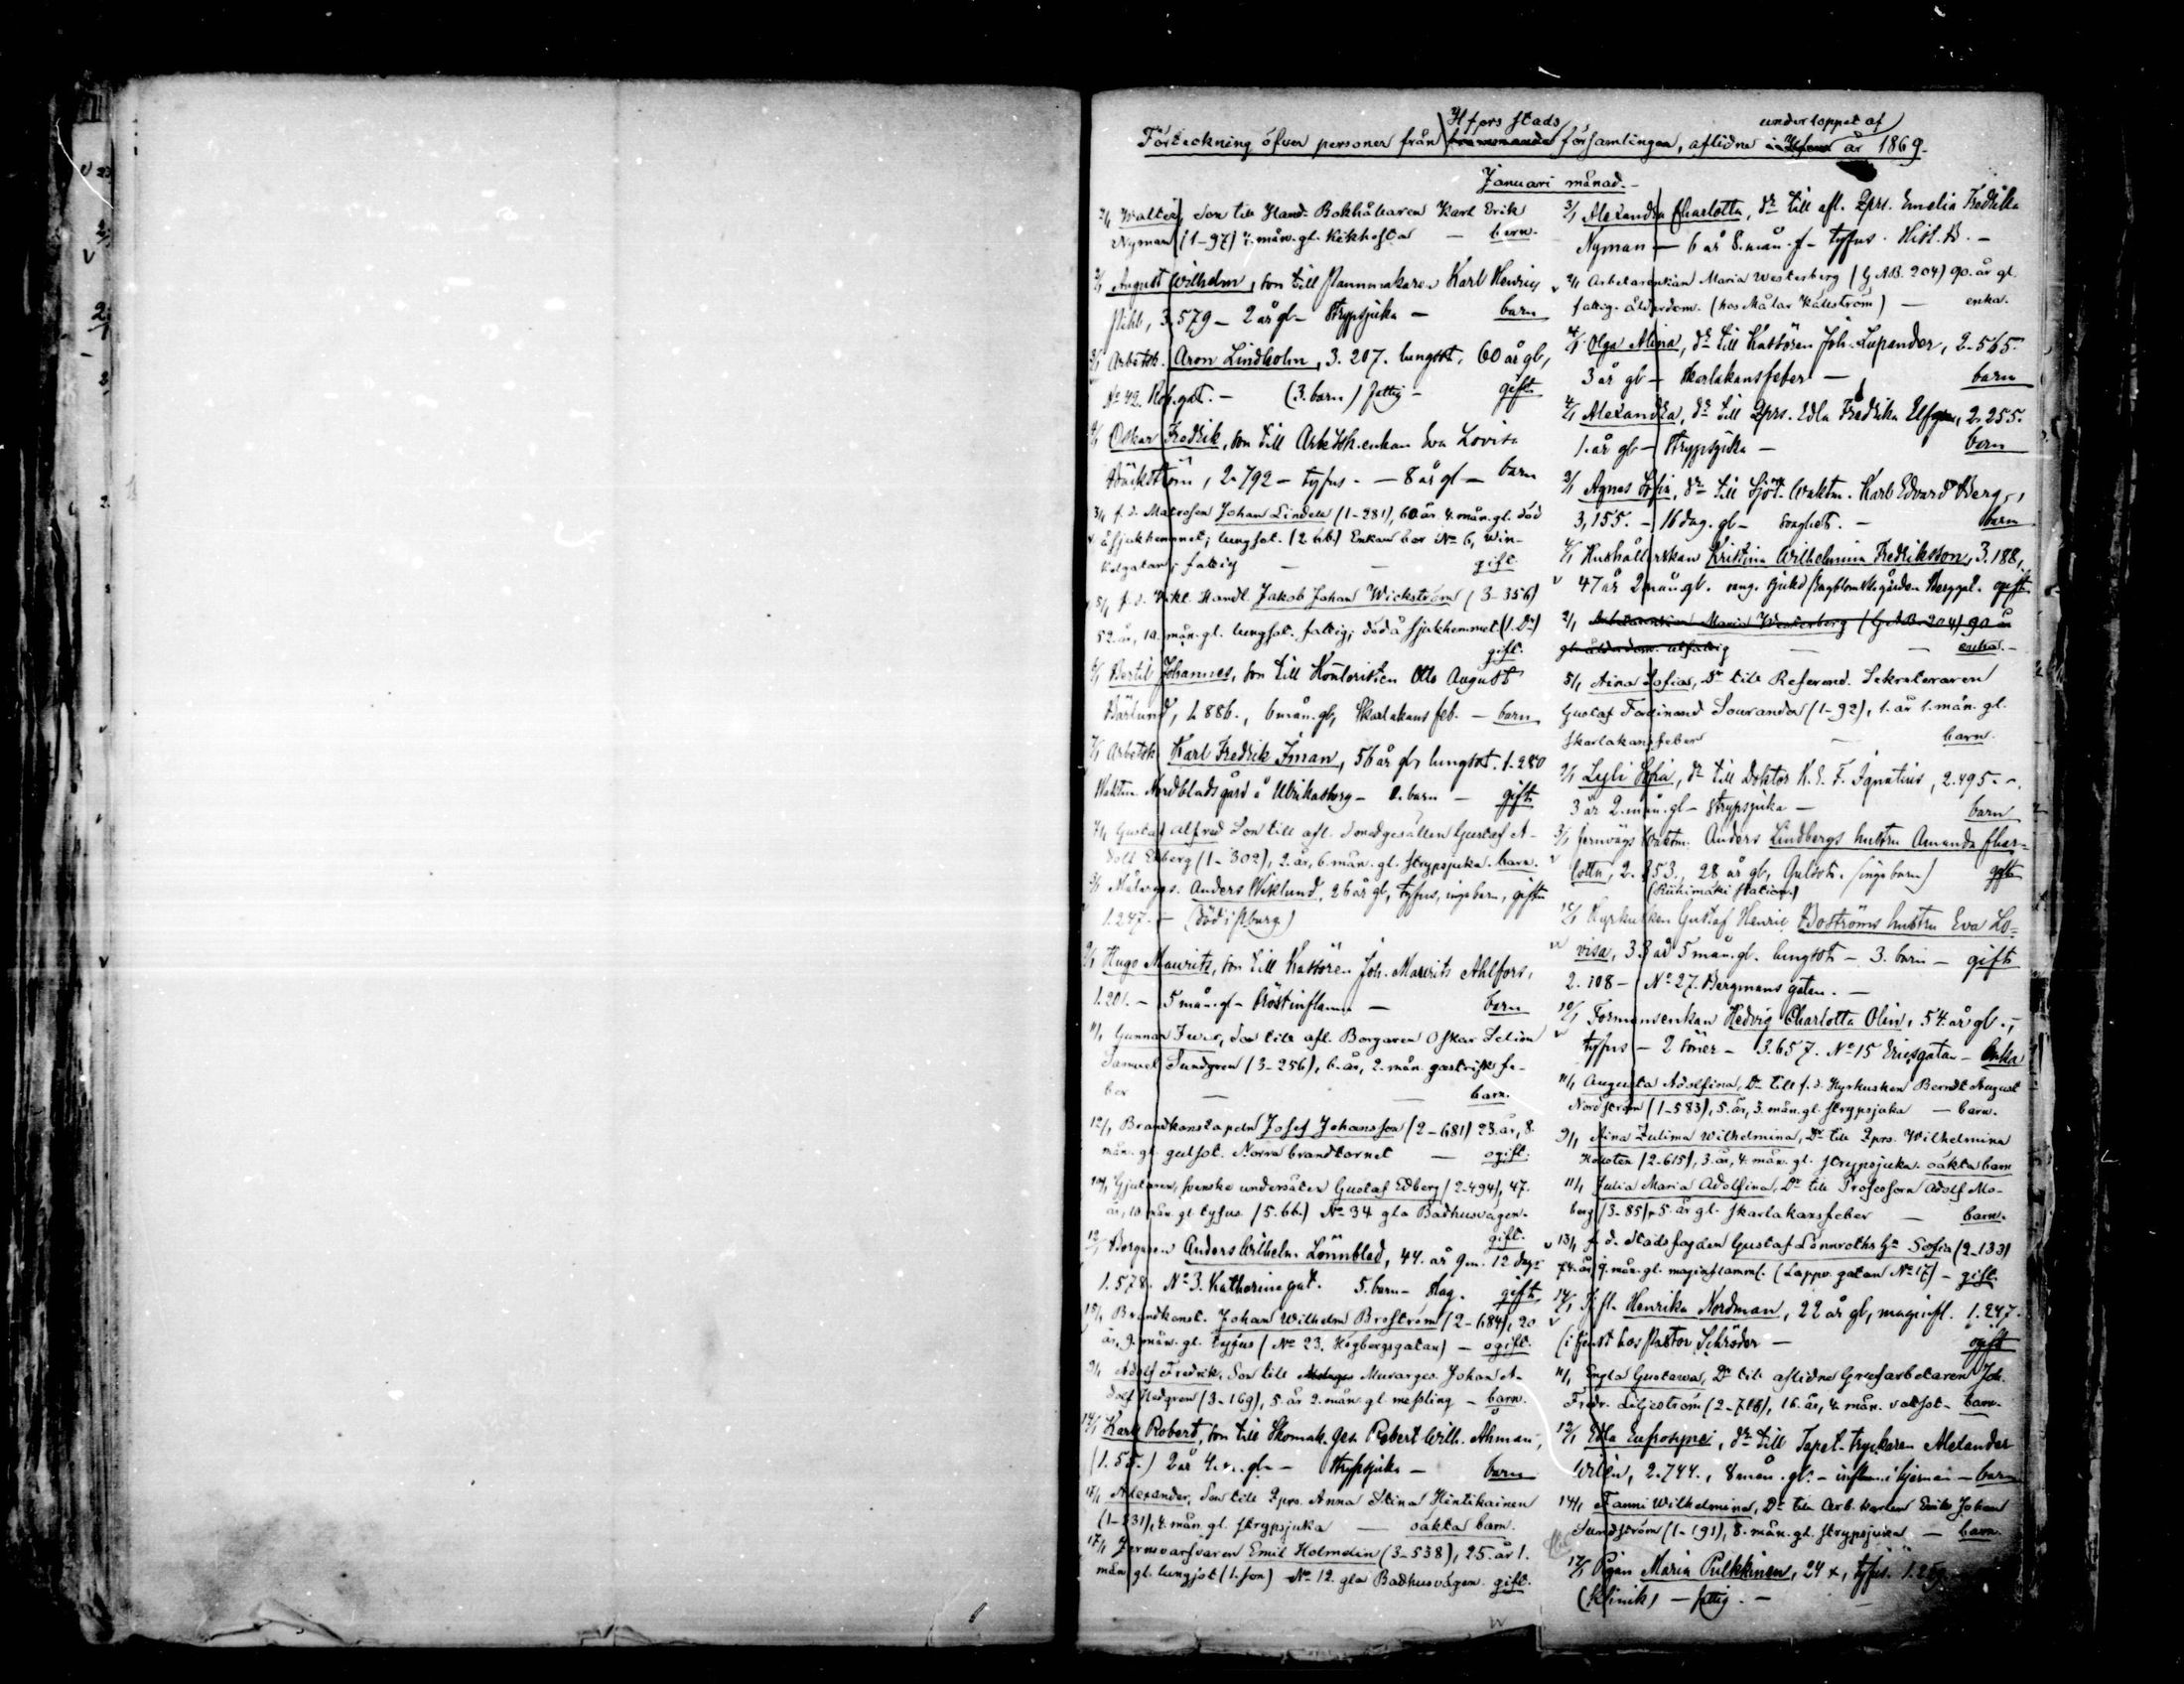 Hfors stads
underloppet af
Förteckning öfver personer från församlingen, aflidne år 1869.
Januari månad.-
2/1 Walter, Son till Hand. Bokhållaren Karl Erik
Nyman (1-97) 7. mån. gl. Kikhosta — barn.
2/1 August Wilhelm, son till Pannmakaren Karl Henric
Pihl, 3.579 - 2 år gl - Strypsjuka - barn
3/1 Arbetsk. Aron Lindholm, 3.207. lungsot, 60 år gl,
No 42. Rob.gat. - (3. barn) fattig - gift
4/1 Oskar Fredrik, son till Arbetsk.enkan Eva Lovisa
Bäckström, 2.792 - tyfus - - 8 år gl - barn
3/1 f. d. Matrosen Johan Lindell (1-281), 60. år. 4. mån. gl. död
å sjukhemmet; lungsot. (2 bb.) Enkan bor No 6, Win-
kelgatan; fattig — — gift.
5/1 f. d. Vikt. Handl. Jakob Johan Wickström (3-356)
52. år, 10. mån. gl. lungsot. fattig; död å sjukhemmet. (1. Dr)
gift.
6/1 Bertil Johannes, son till Kontoristen Otto August
Bärlund, 1.886., 6 mån. gl, Skarlakans feb. - barn
7/1 Arbetsk. Karl Fredrik Iman, 56 år gl, lungsot. 1.280
Waktm. Nordblads gård å Ulrikasborg - 0. barn - gift
7/1 Gustaf Alfred Son till afl. Smedgesällen Gustaf A-
dolf Ekberg (1-302), 2. år, 6. mån. gl. strypsjuka. barn.
3/1 Målarges. Anders Wiklund, 26 år gl, tyfus, inga barn, gift
1.247. - (död i )
9/1 Hugo Maurits, son till Kastören Joh. Maurits Ahlfors,
1.201. - 5 mån. gl - Bröstinflamm - barn
11/1 Gunnar Iwar, Son till afl. Borgaren Oskar Selim
Samuel Sundgren (3-256), 6. år, 2. mån. gastrisk fe-
ber — — barn.
12/1 Brandkonstapeln Josef Johansson (2-681) 23. år, 8.
mån. gl. gulsot. Norra brandtornet — ogift.
10/1 Gjutaren, svenske undersåten Gustaf Edberg (2-494), 47.
år, 10 mån. gl. tyfus (5. bb.) No 34 gla Badhusvägen.
gift.
12/1 Borgaren Anders Wilhelm Lönnblad, 44. år 9 m. 12 dag.
1.578. No 3. Katharinegat. 5. barn - slag. gift
15/1 Brandkonst. Johan Wilhelm Broström (2-684), 20
år, 9. mån. gl. tyfus (No 23. Högbergsgatan) - ogift.
9/1 Adolf Fredrik, Son till Murarges. Johan A-
dolf Hedgren (3-169), 5. år 2. mån. gl messling - barn.
14/1 Karl Robert, son till Skomak. ges. Robert Wilh. Åhman,
(1.55.) 2 år 4. . gl. - Strypsjuka - barn
15/1 Alexander, Son till Qprs. Anna Stina Hintikainen
(1-531), 4. mån. gl. strypsjuka — oäkta barn.
17/1 Jernsvarfvaren Emil Holmelin (3-538), 25. år 1.
mån gl. lungsot (1. son) No 12. gla Badhusvägen. gift.
3/1 Alexandra Charlotta, Dr till afl. Qprs. Emelia Fredrika
Nyman - 6 år 8. mån. gl - tyfus. Hist. B. -
2/1 Arbetarenkan Maria Westerberg (G AB. 204) 90. år gl.
fattig. ålderdom. (hos Målar Källström) — enka.
4/1 Olga Alina, dr till Kastören Joh. Lupander, 2.565.
3 år gl - Skarlakansfeber - barn
4/1 Alexandra, dr till Qprs. Edla Fredrika Elfgren, 2.255.
1. år gl - Strypsjuka - barn
2/1 Agnes Sofia, dr till Sjöt. Waktm. Karl Edvard Berg,
3,155. - 16 dag. gl - svaghet. - barn
4/1 Hushållerskan Kristina Wilhelmina Fredriksson, 3.188,
47 år 2 mån. gl. Berggat. ogift.
2/1 Arbetarenkan Maria Westerberg (G AB. 204) 90 år
gl. ålderdom. utfattig — — enka. -
5/1 Aina Sofia, Dr till Referend. Sekreteraren
Gustaf Ferdinand Sourander (1-92), 1. år 1. mån. gl.
skarlakansfeber — barn.
9/1 Lyli Sofia, dr till Doktor K. E. F. Ignatius, 2.495. -
3 år 2. mån. gl - Strypsjuka - barn
3/1 Jernvägs Waktm. Anders Lindbergs hustru Amanda Char-
lotta, 2.353., 28 år gl, Gulsot. (inga barn) gift
(Riihimäki station.)
12/1 Hyrkusken Gustaf Henric Boströms hustru Eva Lo-
visa, 33 år 5 mån. gl. lungsot - 3. barn - gift
2.108 - No 27. Bergmans gatan. -
10/1 Formansenkan Hedvig Charlotta Olin, 54. år gl. -,
tyfus - 2 söner - 3.657. No 15 Ericsgatan - Enka
11/1 Augusta Adolfina, Dr till f. d. Hyrkusken Berndt August
Nordström (1-583), 5. år, 3. mån. gl. strypsjuka — barn.
9/1 Aina Zulima Wilhelmina, Dr till Qprs. Wilhelmina
(2-615), 3. år, 4. mån. gl. strypsjuka. oäkta barn
11/1 Julia Maria Adolfina, Dr till Professorn Adolf Mo-
berg (3-85), 5. år gl. skarlakansfeber — barn.
13/1 f. d. Stadsfogden Gustaf Lönnroths Hu Sofia (2-133)
74. år, 9. mån. gl. maginflamm. (Lappv. gatan No 17) - gift.
14/1 Tjfl. Henrika Nordman, 22 år gl, maginfl. 1.247.
(i tjenst hos Pastor Schröder - ogift
11/1 Engla Gustawa, Dr till aflidne Grufarbetaren Joh.
Fredr. Liljeström (2-718), 16. år, 4. mån. vattsot - barn.
12/1 Edla Eufrosyne, dr till Tapet. tryckaren Alexander
Wilén, 2.744., 8 mån. gl. - inflam. i hjernan - barn
14/1 Fanni Wilhelmina, Dr till Arb. karlen Emil Johan
Sundström (1-191), 8. mån. gl. strypsjuka — barn.
17/1 Pigan Maria Pulkkinen, 24 +, tyfus. 1.25
(Klinik) - fattig. -